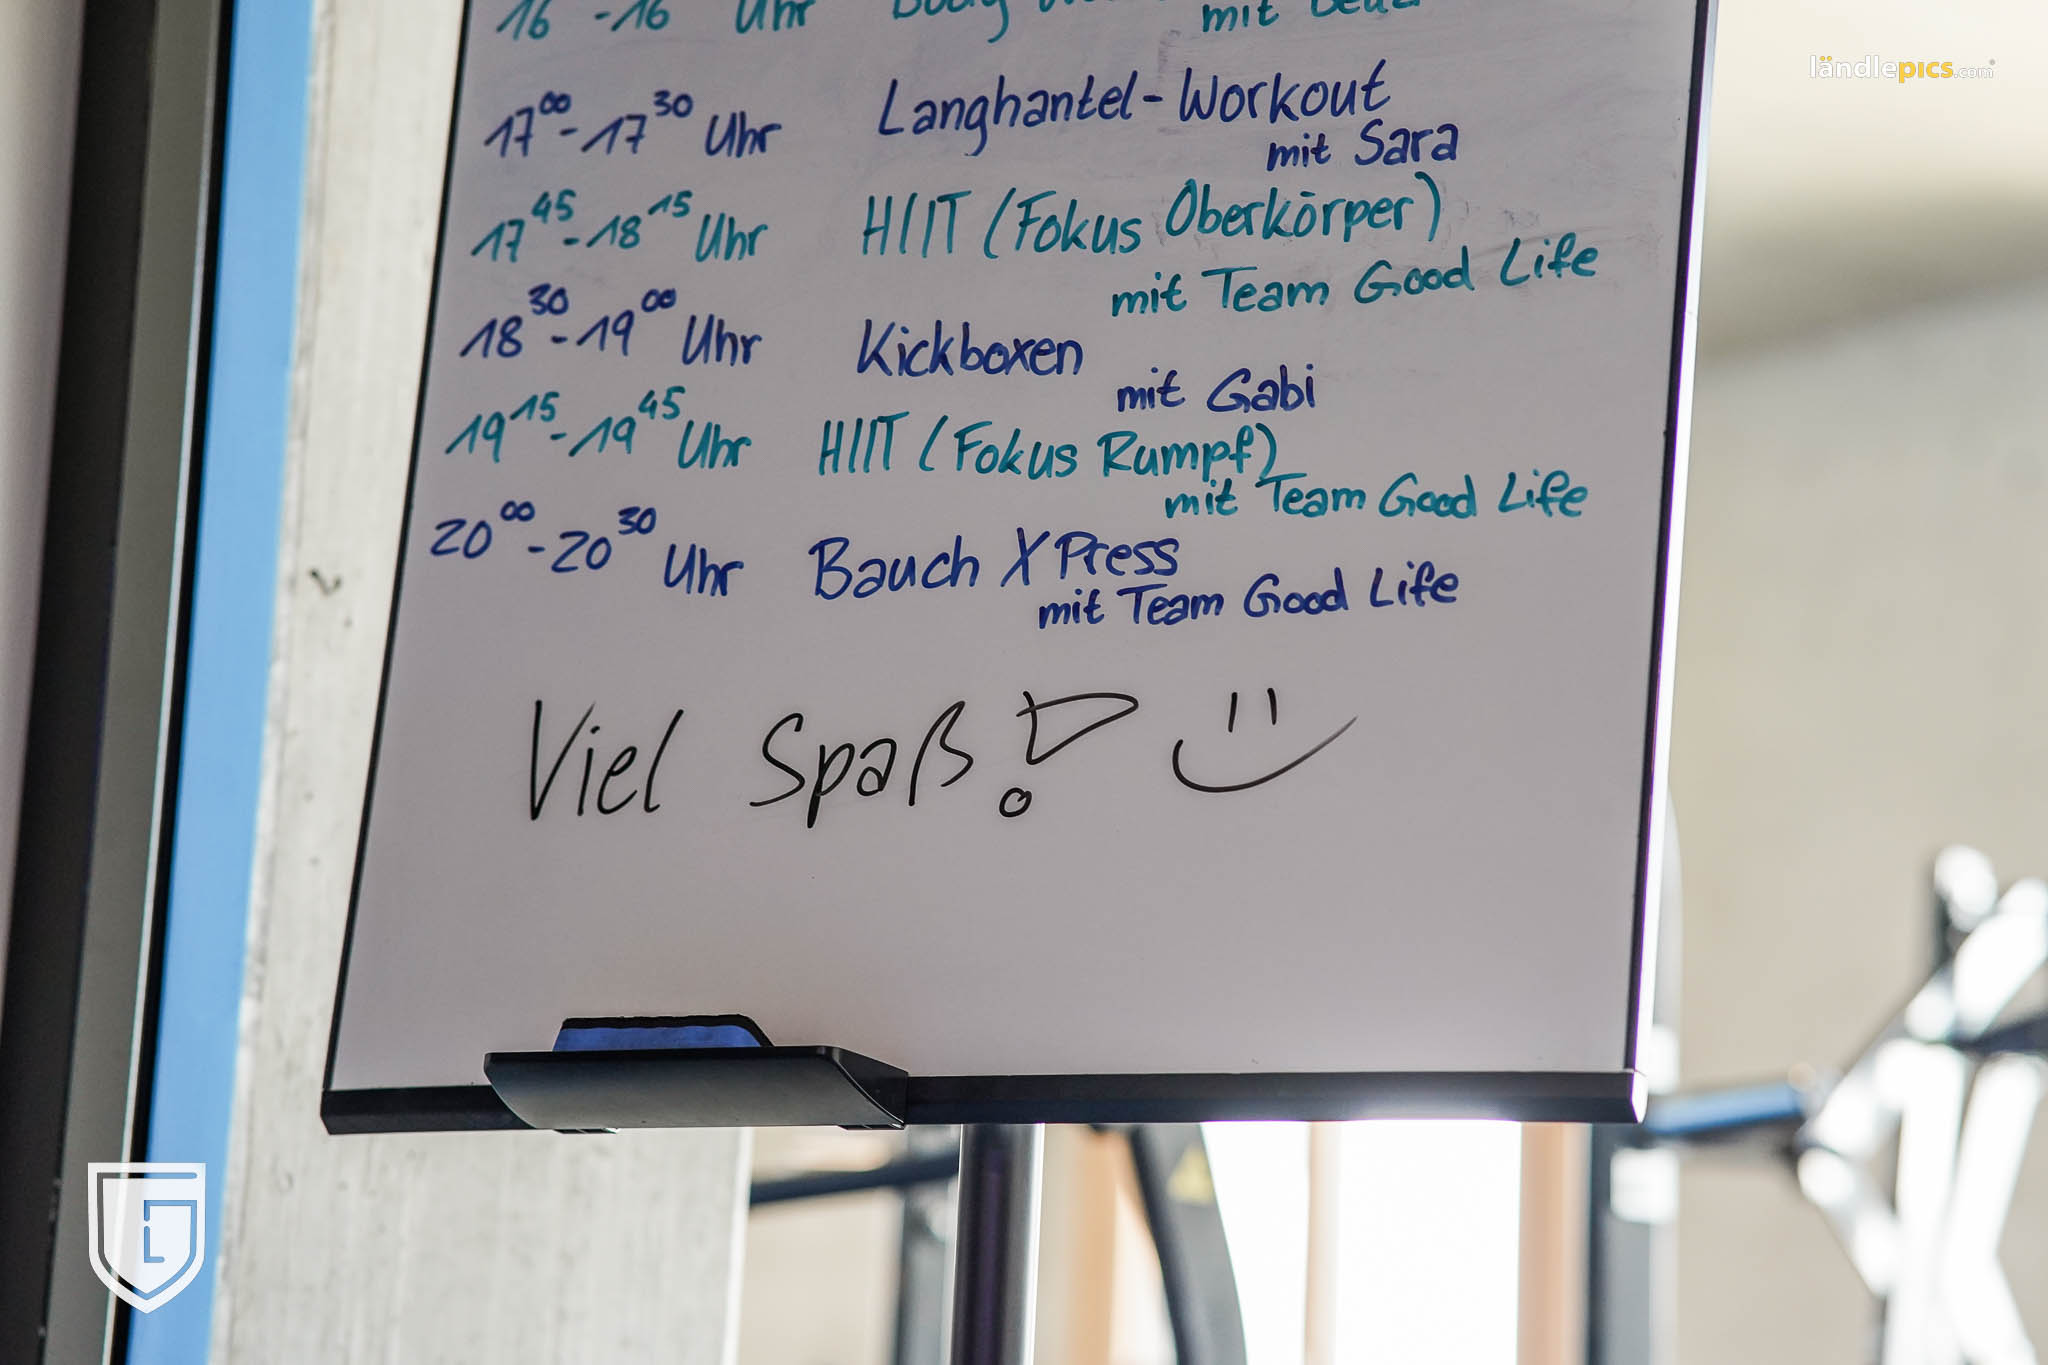 16 - 16 Uhr Body
mit
17⁰⁰ - 17³⁰ Uhr Langhantel - Workout
mit Sara
17⁴⁵ - 18¹⁵ Uhr HIIT (Fokus Oberkörper)
mit Team Good Life
18³⁰ - 19⁰⁰ Uhr Kickboxen
mit Gabi
19¹⁵ - 19⁴⁵ Uhr HIIT (Fokus Rumpf)
mit Team Good Life
20⁰⁰ - 20³⁰ Uhr Bauch XPress
mit Team Good Life
Viel Spaß!
ländlepics.com